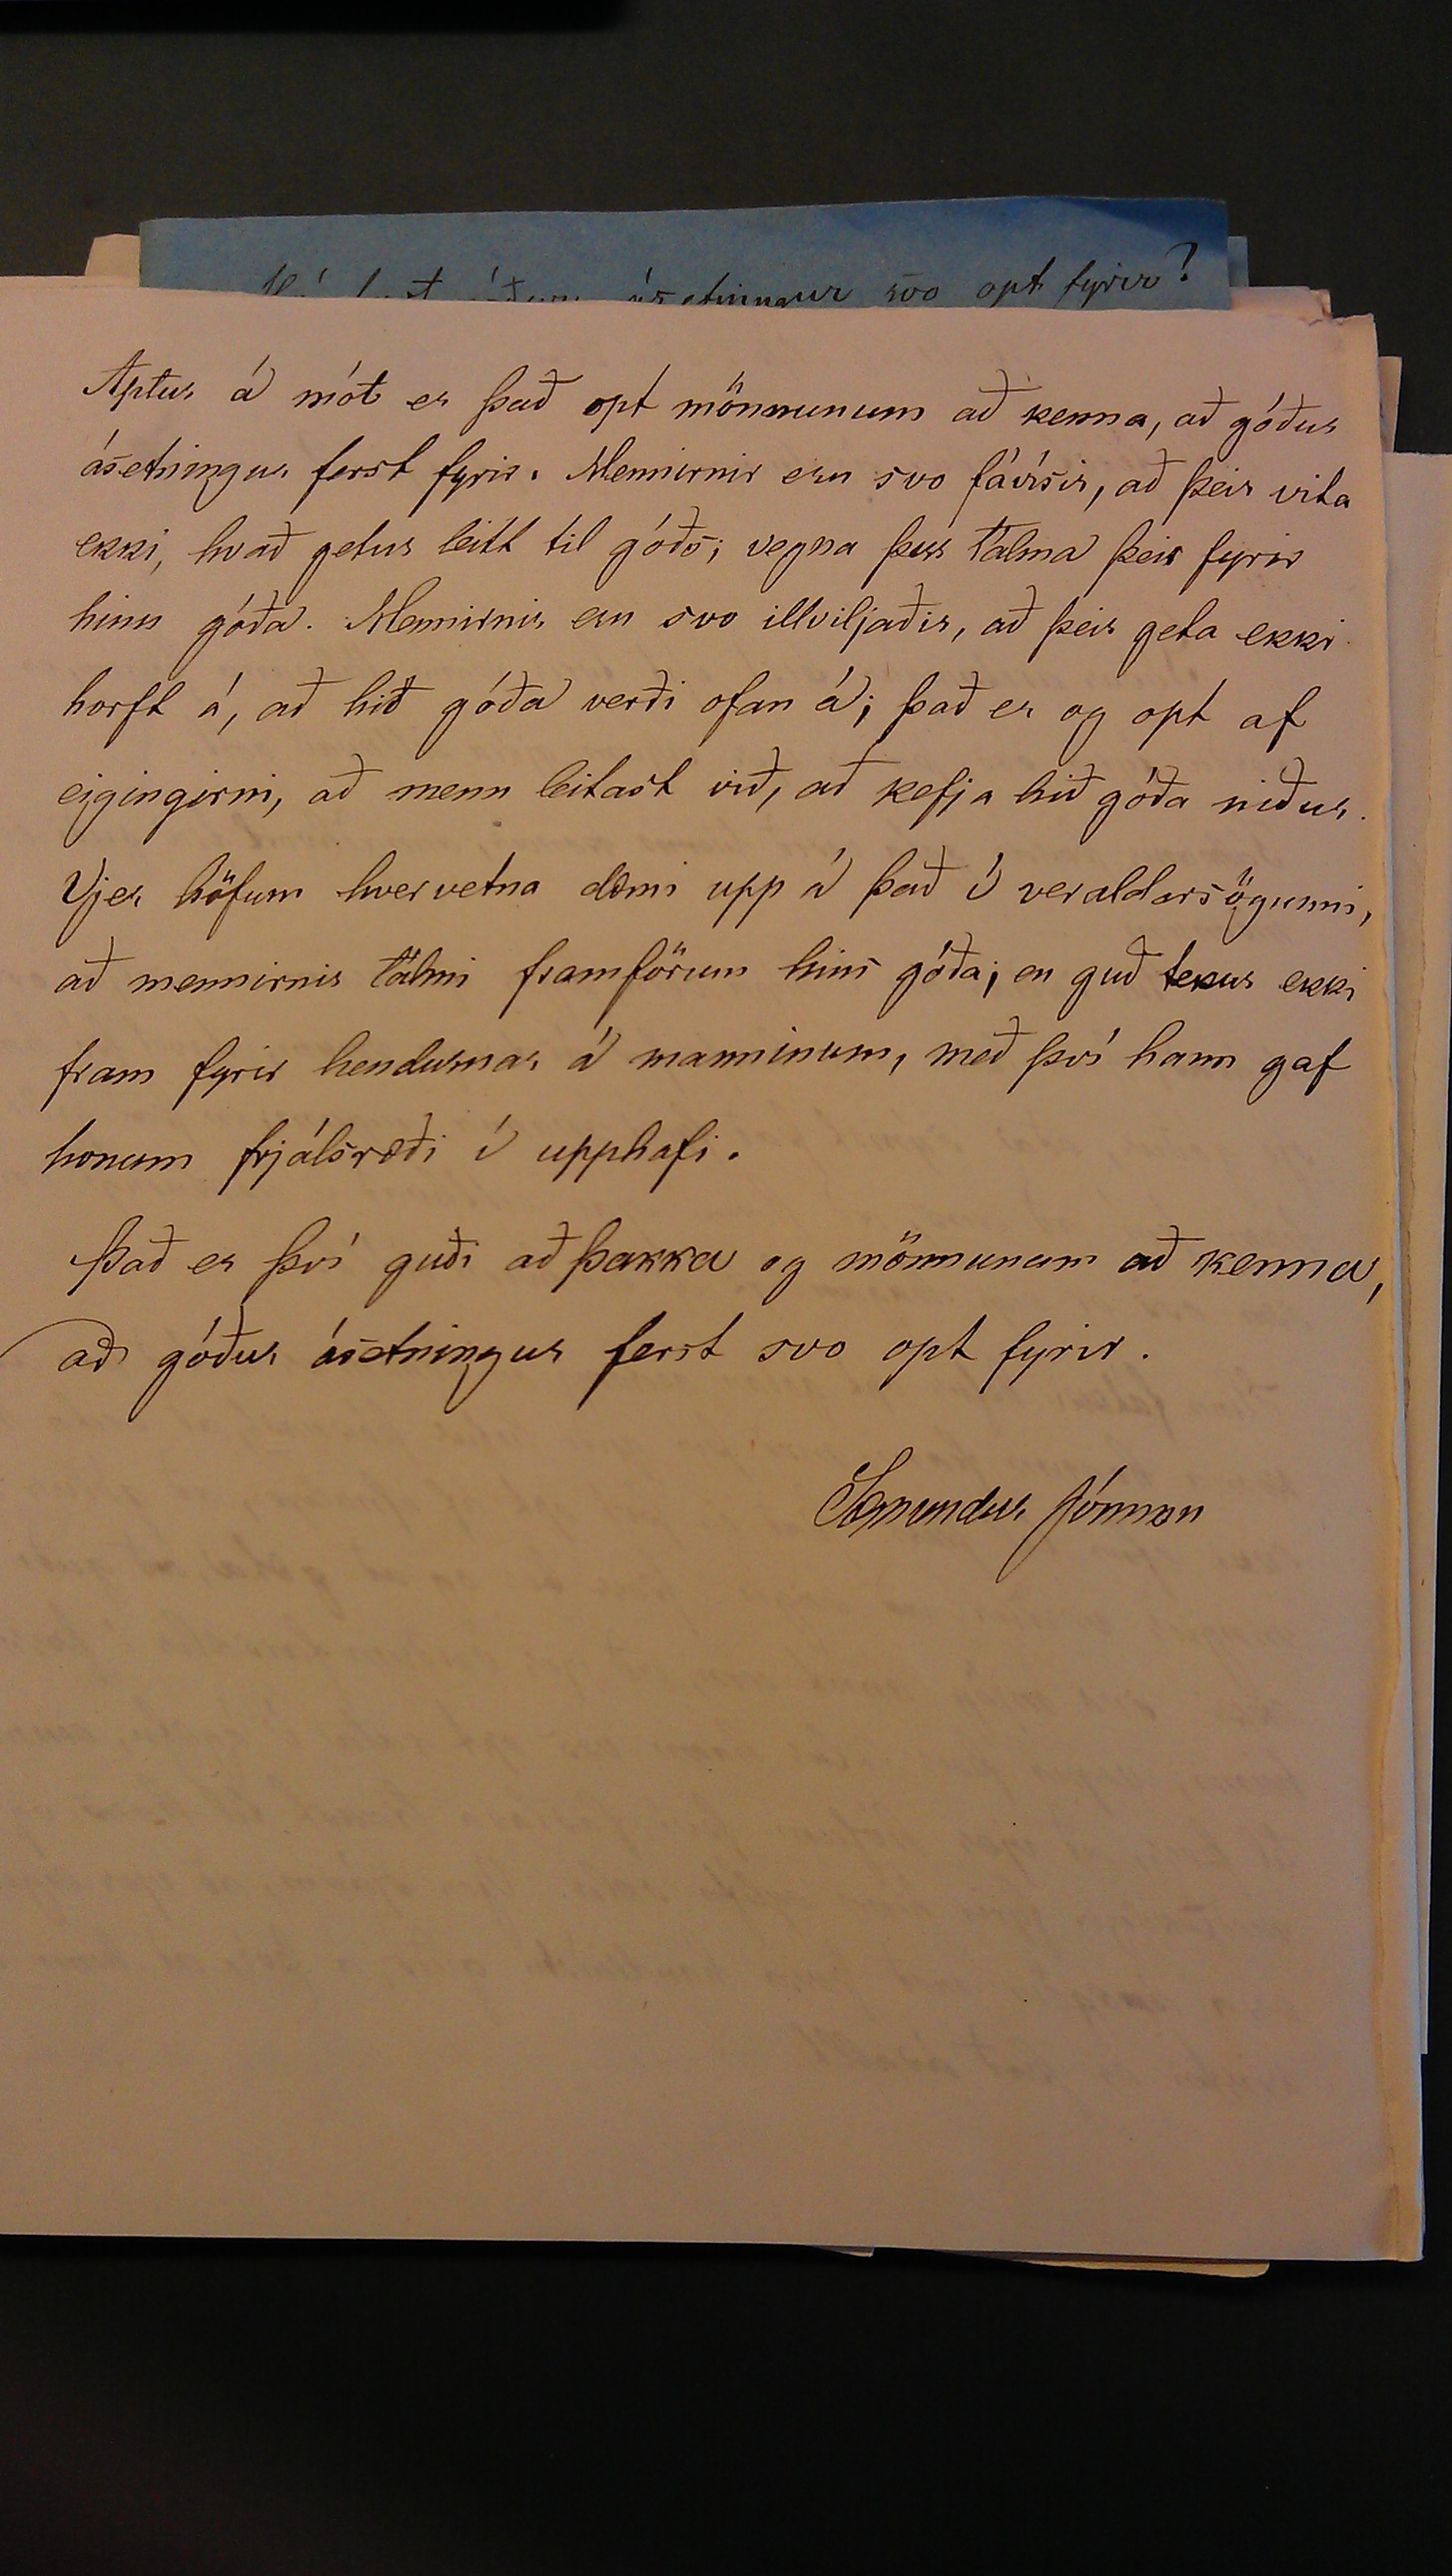 ásetningur svo opt fyrir?
Aptur á mót er það opt mönnunum að kenna, að góður
ásetningur ferst fyrir. Mennirnir eru svo fávísir, að þeir vita
ekki, hvað getur leitt til góðs; vegna þess tálma þeir fyrir
hinu góða. Mennirnir eru svo illviljaðir, að þeir geta ekki
horft á, að hið góða verði ofan á; það er og opt af
eigingirni, að menn leitast við, að kefja hið góða niður.
Vjer höfum hvervetna dæmi upp á það í veraldarsögunni,
að mennirnir tálmi framförum hins góða; en guð tekur ekki
fram fyrir hendurnar á manninum, með því hann gaf
honum frjálsræði í upphafi.
Það er því guði að þakka og mönnunum að kenna,
að góður ásetningur ferst svo opt fyrir.
Sæmundur Jónsson